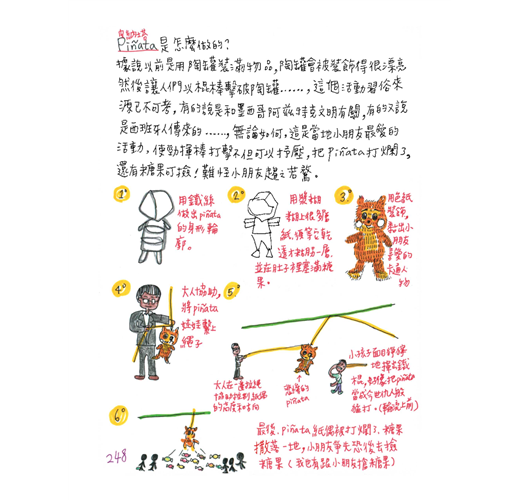 皮納塔
Piñata是怎麼做的？
據說以前是用陶罐裝滿物品，陶罐會被裝飾得很漂亮
然後讓人們以棍棒擊破陶罐……，這個活動習俗來
源已不可考，有的說是和墨西哥阿茲特克文明有關，有的又說
是西班牙人傳來的……，無論如何，這是當地小朋友最愛的
活動，使勁揮棒打擊不但可以抒壓，把Piñata打爛了，
還有糖果可撿！難怪小朋友趨之若鶩。
1°
用鐵絲
做出piñata
的身形輪
廓。
2°
用漿糊
糊上很多層
紙，須等它乾
並在肚子裡塞滿糖
果。
3°
用色紙
裝飾，
黏出小
朋友
喜愛的
卡通人
物
4°
大人協助，
將piñata
娃娃繫上
繩子
5°
大人在一邊拉繩
協助控制紙偶
的高度和方向
恐懼的
piñata
小孩子面目猙獰
地揮球
棍，好像把piñata
當成今世仇人般
猛打。(輪流上前)
6°
最後，Piñata紙偶被打爛了，糖果
撒落一地，小朋友爭先恐後去撿
糖果（我也有跟小朋友搶糖果）
248